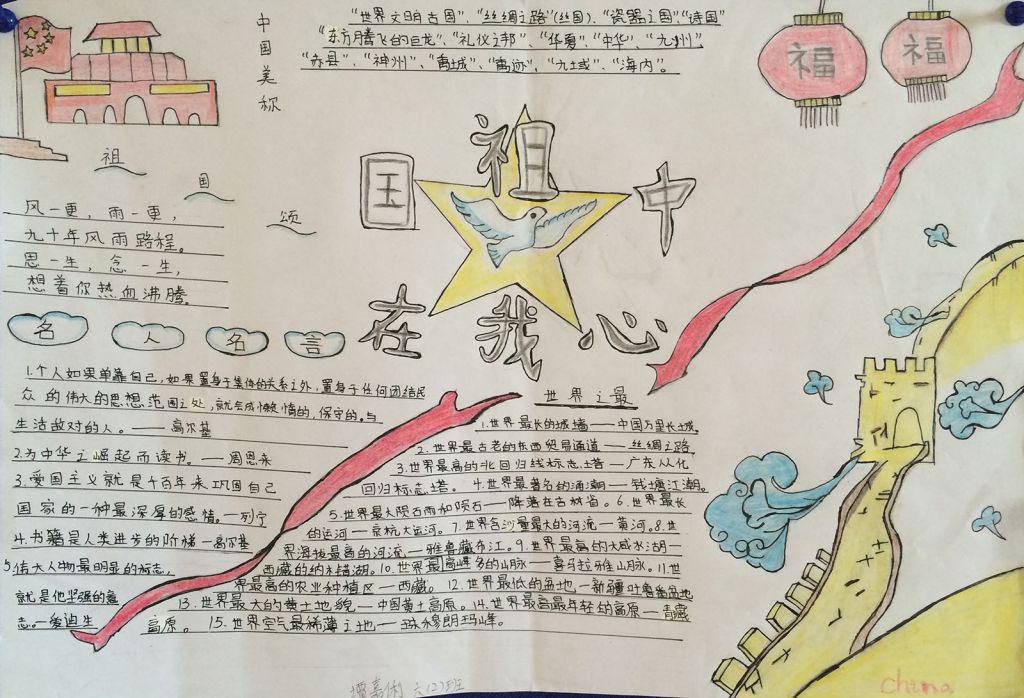 中国美称
"世界文明古国"、"丝绸之路"(丝国)、"瓷器之国"、"诗国"
"东方腾飞的巨龙"、"礼仪之邦"、"华夏"、"中华"、"九州"、
"赤县"、"神州"、"禹城"、"禹迹"、"九域"、"海内"。
福
福
祖国颂
风一更,雨一更,
九十年风雨路程。
思一生,念一生,
想着你热血沸腾。
祖国在我心中
名人名言
1.个人如果单靠自己,如果置身于集体的关系之外,置身于任何团结民
众的伟大的思想范围之处,就会成懒惰的,保守的。与
生活敌对的人。——高尔基
2.为中华之崛起而读书。——周恩来
3.爱国主义就是千百年来巩固自己
国家的一种最深厚的感情。—列宁
4.书籍是人类进步的阶梯—高尔基
5.伟大人物最明显的标志,
就是他坚强的意
志。—爱迪生
世界之最
1.世界最长的城墙——中国万里长城。
2.世界最古老的东西贸易通道——丝绸之路。
3.世界最高的北回归线标志塔——广东从化
回归标志塔。 4.世界最著名的涌潮——钱塘江潮。
5.世界最大陨石雨和陨石——降落在吉林省。6.世界最长
的运河—京杭大运河。7.世界含沙量最大的河流—黄河。8.世
界海拔最高的河流—雅鲁藏布江。9.世界最高的大咸水湖—
西藏的纳木错湖。10.世界最高峰多的山脉——喜马拉雅山脉。11.世
界最高的农业种植区—西藏。 12.世界最低的盆地—新疆吐鲁番盆地
13.世界最大的黄土地貌—中国黄土高原。14.世界最高最年轻的高原—青藏
高原。 15.世界空气最稀薄之地——珠穆朗玛峰。
六(2)班
china